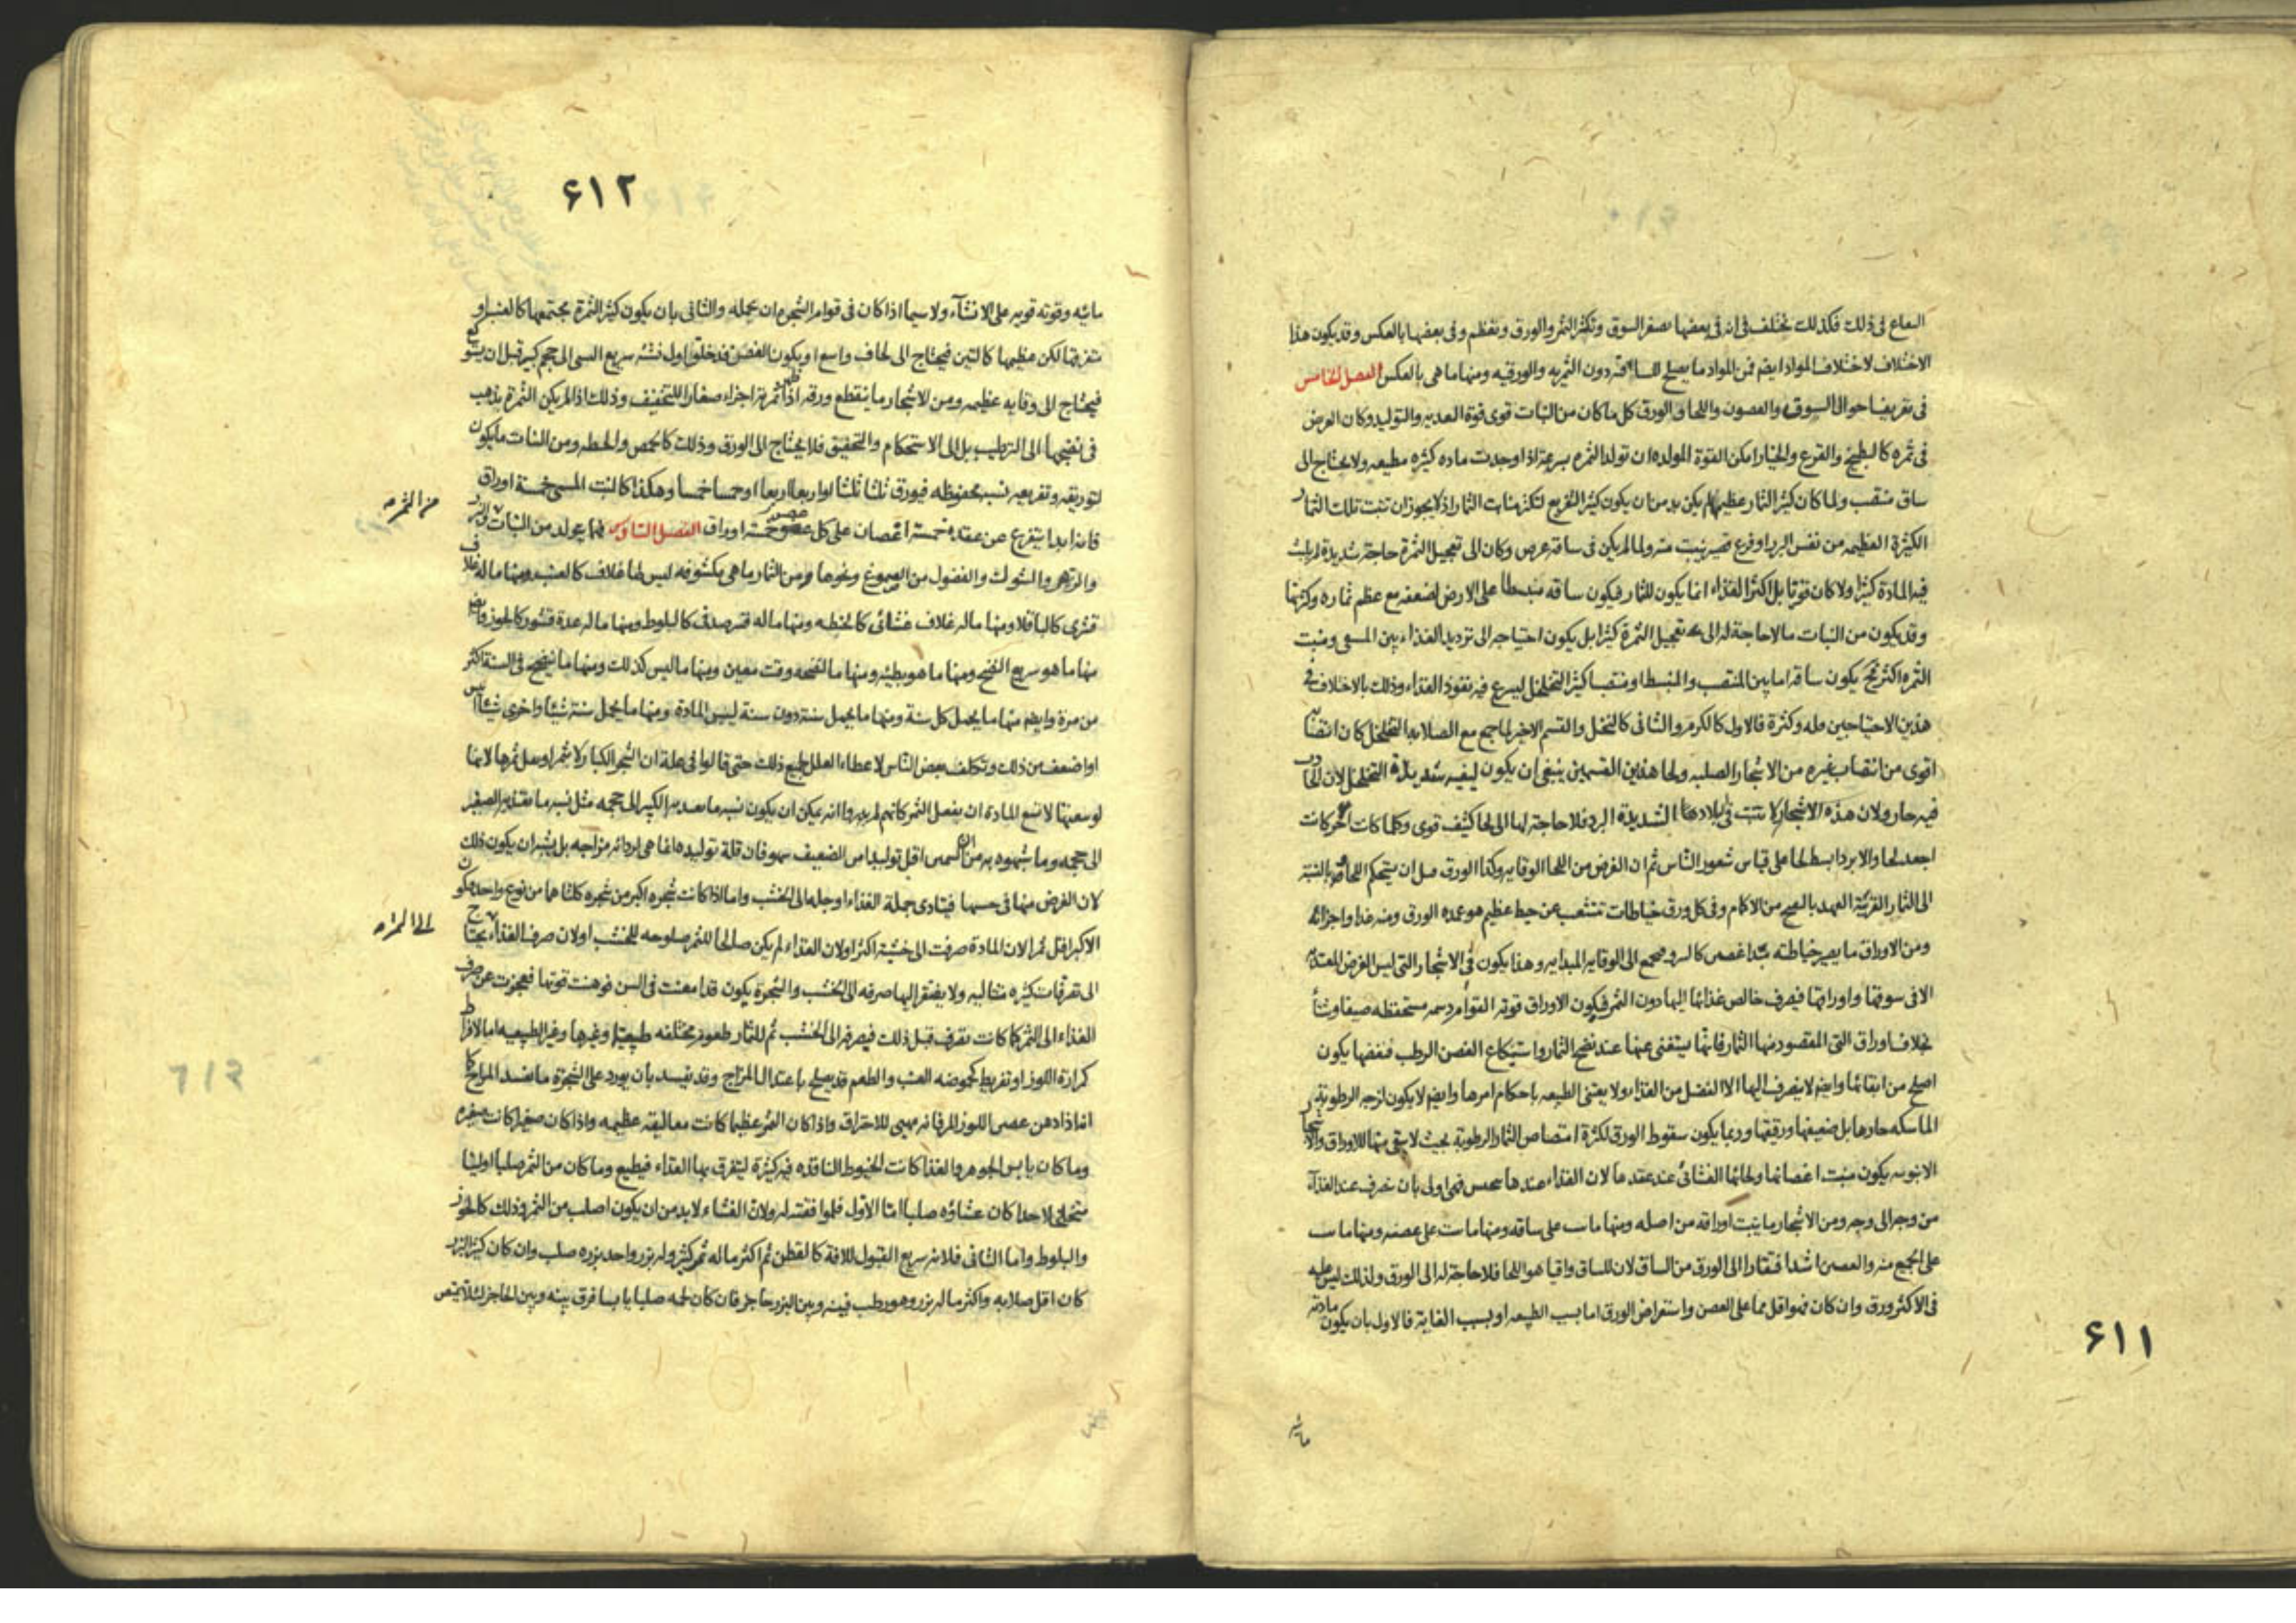 فى ذلك فكذلك تختلف فى انه فى بعضها يصغر السوق وتكثر الثمر والورق وتعظم وفى بعضها بالعكس وقد يكون هذا
الاختلاف لاختلاف المواد ايضم فمن المواد ما يصلح دون الثمريه والورقيه ومنها ما هى بالعكس الفصل الخامس
فى تعريف احوال السوق والغصون واللحا والورق كل ما كان من النبات قوى قوة التوليد وكان الغرض
فى ثمره كالبطيخ والقرع والخيار امكن القوة المولده ان تولد الثمره بسرعة اذا وجدت ماده كثيره مطيعه ولا يحتاج الى
ساق منتصب ولما كان كثير الثمار عظيمها لم يكن بد من ان يكون كثير التفريع لتكثر منابت الثمار اذ لا يجوز ان تنبت تلك الثمار
الكثيرة العظيمه من نفس او فرع قصير ينبت منه ولما لم يكن فى ساقه عرض وكان الى تعجيل الثمرة حاجة شديدة لم يلبث
فيه المادة كثيرا ولا كان قويا بل اكثر الغذاء انما يكون للثمار فيكون ساقه منبسطا على الارض لضعفه مع عظم ثماره وكثرتها
وقد يكون من النبات ما لا حاجة له الى تعجيل الثمرة كثيرا بل يكون احتياجه الى ترديد الغذاء بين المسعى ومنبت
الثمره اكثر يكون ساقه اما بين المنتصب والمنبسط او منتصبا كثير التخلخل ليسرع فيه نفوذ الغذاء وذلك بالاختلاف فى
هذين الاحتياجين قله وكثرة فالاول كالكرم والثانى كالنخل والقسم الاخير لما جمع مع الصلابه التخلخل كان
اقوى من انتصاب غيره من الاشجار الصلبه ولحا هذين القسمين ينبغى ان يكون ليفيه شديدة التخلخل لان
فيه حار ولان هذه الاشجار لا تنبت فى بلادها الشديدة البرد فلا حاجة لها الى لحا كثيف قوى وكلما كانت احر كانت
اجعد لحا والابرد ابسط لحا على قياس شعور الناس ثم ان الغرض من اللحا الوقايه وكذا الورق قبل ان يستحكم اللحا بالنسبة
الى الثمار القريبة العهد من الاكمام وفى كل ورق خياطات تنشعب عن خيط عظيم هو عمده الورق ومنه غذاء اجزائه
ومن الاوراق ما يصير خياطته الى الوقايه وهذا يكون فى الاشجار التى ليس الغرض
الا فى سوقها واوراقها فيصرف خالص غذائها اليها دون الثمر فيكون الاوراق قويه القوام مستحفظه صيفا وشتاء
بخلاف اوراق التى المقصود منها الثمار فانها يستغنى عنها عند نضج الثمار الغصن الرطب يكون
اصلح من ابقائها وايضم لا يصرف اليها الا الفضل من الغذاء ولا يعتنى الطبيعه باحكام امرها وايضم لا يكون لزجه الرطوبة
الماسكه حارها بل ضعيفها ورقيقها وربما يكون سقوط الورق لكثرة امتصاص الثمار الرطوبة بحيث لا يبقى منها للاوراق
يكون منبت اغصانها ولحائها الغشائى عند عقدها لان الغذاء عندها فهى اولى بان عند الغذاء
من وجه الى وجه ومن الاشجار ما ينبت اوراقه من اصله ومنها ما على ساقه ومنها ما على غصنه ومنها ما
على الجميع منه والغصن اشد افتقارا الى الورق من الساق لان للساق واقيا هو اللحا فلا حاجة له الى الورق ولذلك ليس عليه
فى الاكثر ورق وان كان فهو اقل مما على الغصن واستعراض الورق اما بسبب الطبيعه او بسبب الغاية فالاول بان يكون مادته
مائيه
۶۱۱
۶۱۲
مائيه وقوته قويه على الانشاء ولا سيما اذا كان فى قوام الشجره ان يحمله والثانى بان يكون كثير الثمرة مجتمعها كالعنب او
متفرقها لكن عظيمها كالتين فيحتاج الى لحاف واسع او يكون الغصن قد خلق اول نشئه سريع السعى الى حجم كبير قبل ان
فيحتاج الى وقايه عظيمه ومن الاشجار ما ينقطع ورقه اجزاء صغارا للتخفيف وذلك اذا لم يكن الثمرة يذهب
فى نضجها الى الترطيب بل الى الاستحكام والتجفيف فلا يحتاج الى الورق وذلك كالحمص والحنطه ومن النبات ما يكون
لتوريقه وتفريعه نسب محفوظه فيورق ثلثا ثلثا او اربعا اربعا او خمسا خمسا وهكذا كالنبت المسمى خمسة اوراق
فانه ابدا يتفرع عن عقده خمسة اغصان على كل غصن خمسة اوراق الفصل السادس فيما يولد من النبات
والزهر والشوك والفضول من الصموغ ونحوها ومن الثمار ما هى مكشوفه ليس لها غلاف كالعنب ومنها ما له غلاف
قشرى كالباقلا ومنها ما له غلاف غشائى كالحنطه ومنها ما له قشر صدفى كالبلوط ومنها ما له عدة قشور كالجوز وايضم
منها ما هو سريع النضج ومنها ما هو بطيئه ومنها ما لنضجه وقت معين ومنها ما ليس كذلك ومنها ما ينضج فى السنة اكثر
من مرة وايضم منها ما يحمل كل سنة ومنها ما يحمل سنة دون سنة ليبس المادة ومنها ما يحمل سنة شيئا واخرى شيئا
او اضعف من ذلك وتكلف بعض الناس لاعطاء العلل لجميع ذلك حتى قالوا فى علة ان الشجر الكبار لا يثمر او يقل ثمرها لانها
لوسعتها لا تسع المادة ان يفعل الثمر كانهم لم يدروا انه يمكن ان يكون نسبه ما الكبير الى حجمه مثل نسبه ما الصغير
الى حجمه وما شبهوه به من ان اقل توليدا من الضعيف سهو فان قلة توليده انما هى لرداءة مزاجه بل يشبه ان يكون ذلك
لان الغرض منها فى خشبها فيتادى جملة الغذاء او جلها الى الخشب واما اذا كانت شجره اكبر من شجره كلتاهما من نوع واحد
الاكبر اقل ثمرا لان المادة صرفت الى خشبة اكثر او لان الغذاء لم يكن صالحا للثمر صلوحه للخشب او لان صرف الغذاء يحتاج
الى تفرقات كثيره ولا يفتقر اليها صرفه الى الخشب والشجرة يكون قد امعنت فى السن فوهنت قوتها فعجزت عن صرف
الغذاء الى الثمر كما كانت تصرف قبل ذلك فيصرفه الى الخشب ثم للثمار طعوم مختلفه طبيعيا وغيرها وغير الطبيعيه اما لافراط
كمرارة اللوز او تفريط كحموضه العنب والطعم قد يصلح باعتدال المزاج وقد يفسد بان يورد على الشجرة ما يفسد المزاج كما
اذا دهن غصن اللوز المر فانه يهيئ للاحتراق واذا كان الثمر عظيما كانت معاليقه عظيمه واذا كان صغيرا كانت صغيره
وما كان يابس الجوهر والغذا كانت الخيوط النافذه فيه كثيرة ليتفرق بها الغذاء فيطيع وما كان من الثمر صلبا او لينا
متخلخلا جدا كان غشاؤه صلبا اما الاول فلموافقته له ولان الغشاء لا بد من ان يكون اصلب من الثمر وذلك كالجوز
والبلوط واما الثانى فلانه سريع القبول للافة كالقطن ثم اكثر ما له ثمر كبير وله بزر واحد بزره صلب وان كان كثير البزر
كان اقل صلابه واكثر ما له بزر وهو رطب فبينه وبين البزر حاجز فان كان لحمه صلبا يابسا فرق بينه وبين الحاجز لئلا يمتص